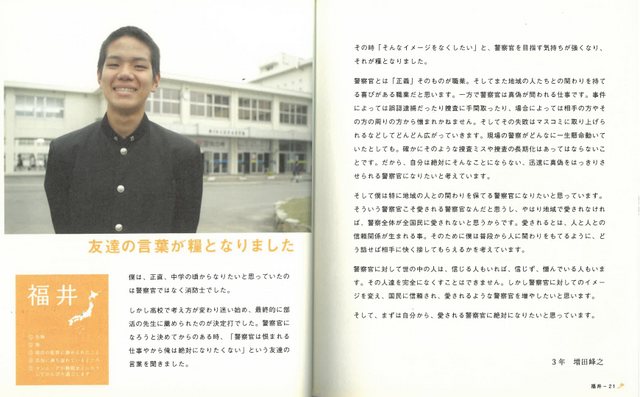 友達の言葉が糧となりました
福井
僕は、正直、中学の頃からなりたいと思っていたの
は警察官ではなく消防士でした。
しかし高校で考え方が変わり迷い始め、最終的に部
活の先生に薦められたのが決定打でした。警察官に
なろうと決めてからのある時、「警察官は恨まれる
仕事やから俺は絶対になりたくない」という友達の
言葉を聞きました。
その時「そんなイメージをなくしたい」と、警察官を目指す気持ちが強くなり、
それが糧となりました。
警察官とは「正義」そのものが職業。そしてまた地域の人たちとの関わりを持て
る喜びがある職業だと思います。一方で警察官は真偽が問われる仕事です。事件
によっては誤認逮捕だったり捜査に手間取ったり、場合によっては相手の方やそ
の方の周りの方から憎まれかねません。そしてその失敗はマスコミに取り上げら
れるなどしてどんどん広がっていきます。現場の警察がどんなに一生懸命動いて
いたとしても。確かにそのような捜査ミスや捜査の長期化はあってはならないこ
とです。だから、自分は絶対にそんなことにならない、迅速に真偽をはっきりさ
せられる警察官になりたいと考えています。
そして僕は特に地域の人との関わりを保てる警察官になりたいと思っています。
そういう警察官こそ愛される警察官なんだと思うし、やはり地域で愛されなけれ
ば、警察全体が全国民に愛されないと思うからです。愛されるとは、人と人との
信頼関係が生まれる事。そのために僕は普段から人に関わりをもてるように、ど
う話せば相手に快く接してもらえるかを考えています。
警察官に対して世の中の人は、信じる人もいれば、信じず、憎んでいる人もいま
す。その人達を完全になくすことはできません。しかし警察官に対してのイメー
ジを変え、国民に信頼され、愛されるような警察官を増やしたいと思います。
そして、まずは自分から、愛される警察官に絶対になりたいと思っています。
3年 増田峰之
福井－21